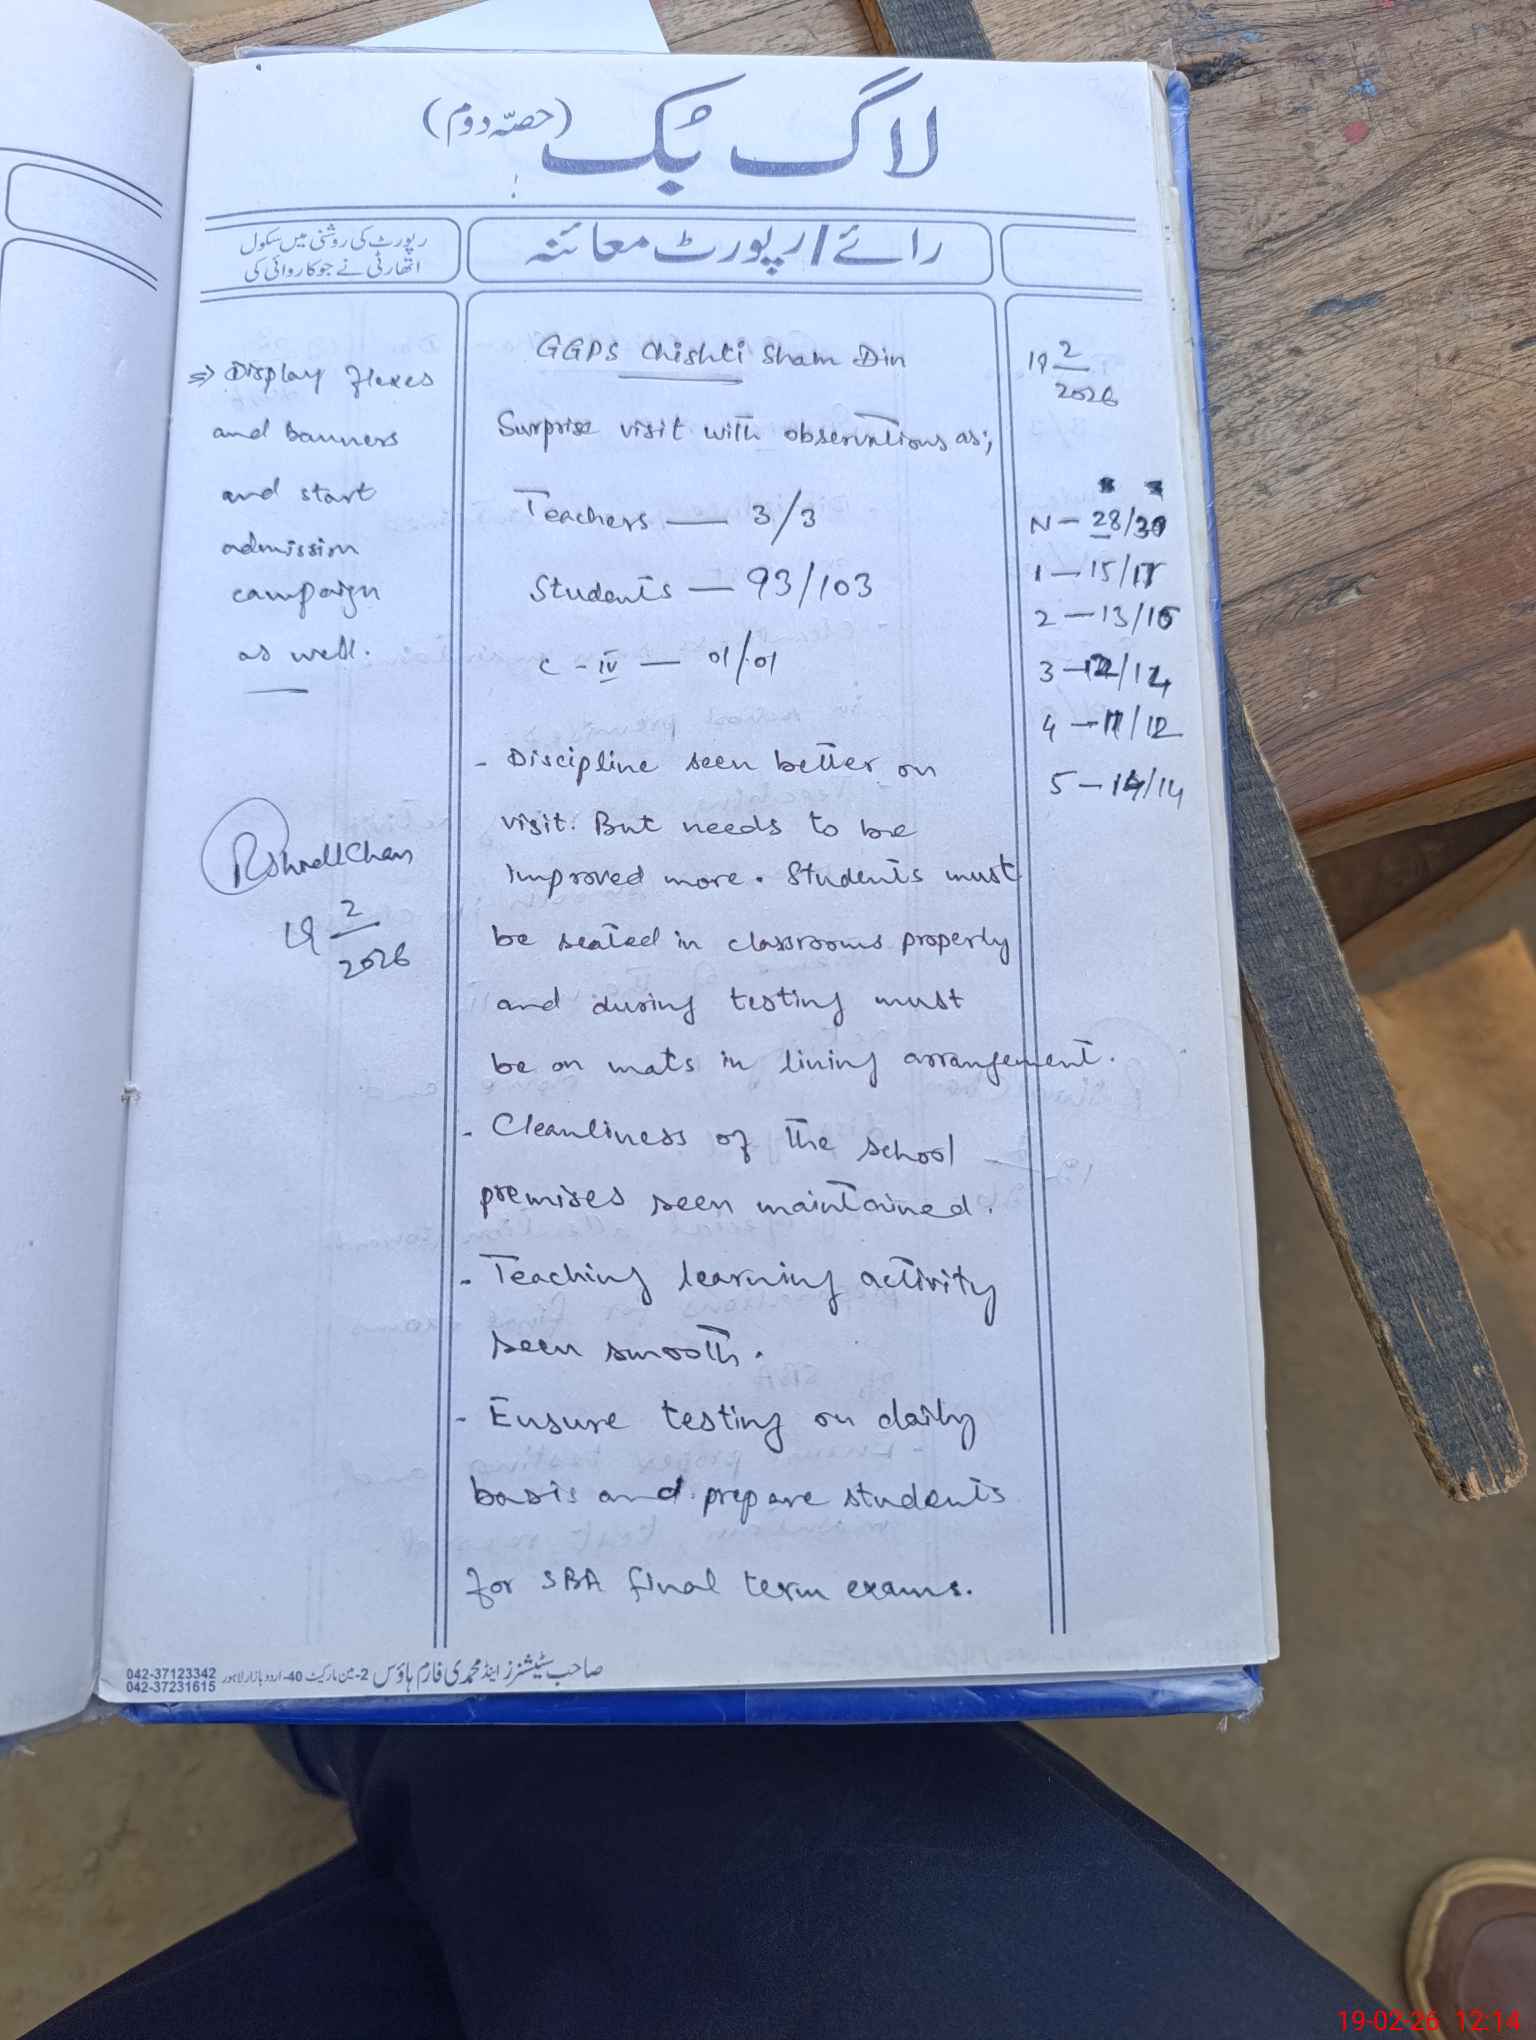 لاگ بک (حصّہ دوم)
رپورٹ کی روشنی میں سکول
اتھارٹی نے جو کاروائی کی
رائے/رپورٹ معائنہ
GGPS Chishti Sham Din
19 2/2026
Surprise visit with observations as;
Teachers — 3/3
Students — 93/103
C-IV — 01/01
N — 28/30
1 — 15/17
2 — 13/16
3 — 12/14
4 — 11/12
5 — 14/14
- Discipline seen better on
visit. But needs to be
improved more. Students must
be seated in classrooms properly
and during testing must
be on mats in lining arrangement.
- Cleanliness of the school
premises seen maintained.
- Teaching learning activity
seen smooth.
- Ensure testing on daily
basis and prepare students
for SBA final term exams.
⇒ Display flexes
and banners
and start
admission
campaign
as well.
19 2/2026
صاحب سٹیشنرز اینڈ محمدی فارم ہاؤس 2-مین مارکیٹ 40-اردو بازار لاہور
042-37123342
042-37231615
19-02-26 12:14